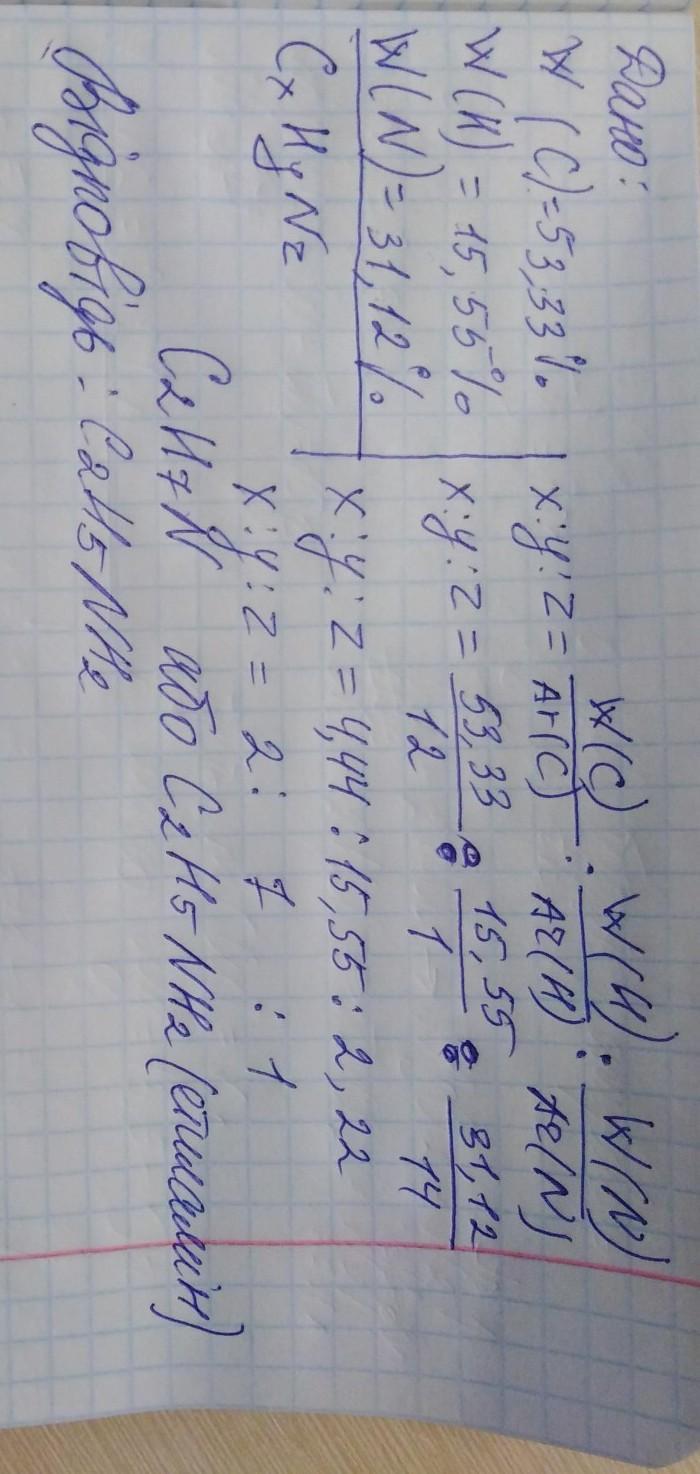 Дано:
W(C)=53,33%
W(H)=15,55%
W(N)=31,12%
CxHyNz
x:y:z = W(C)/Ar(C) : W(H)/Ar(H) : W(N)/Ar(N)
x:y:z = 53,33/12 : 15,55/1 : 31,12/14
x:y:z = 4,44 : 15,55 : 2,22
x:y:z = 2 : 7 : 1
C2H7N або C2H5NH2 (етиламін)
Відповідь: C2H5NH2